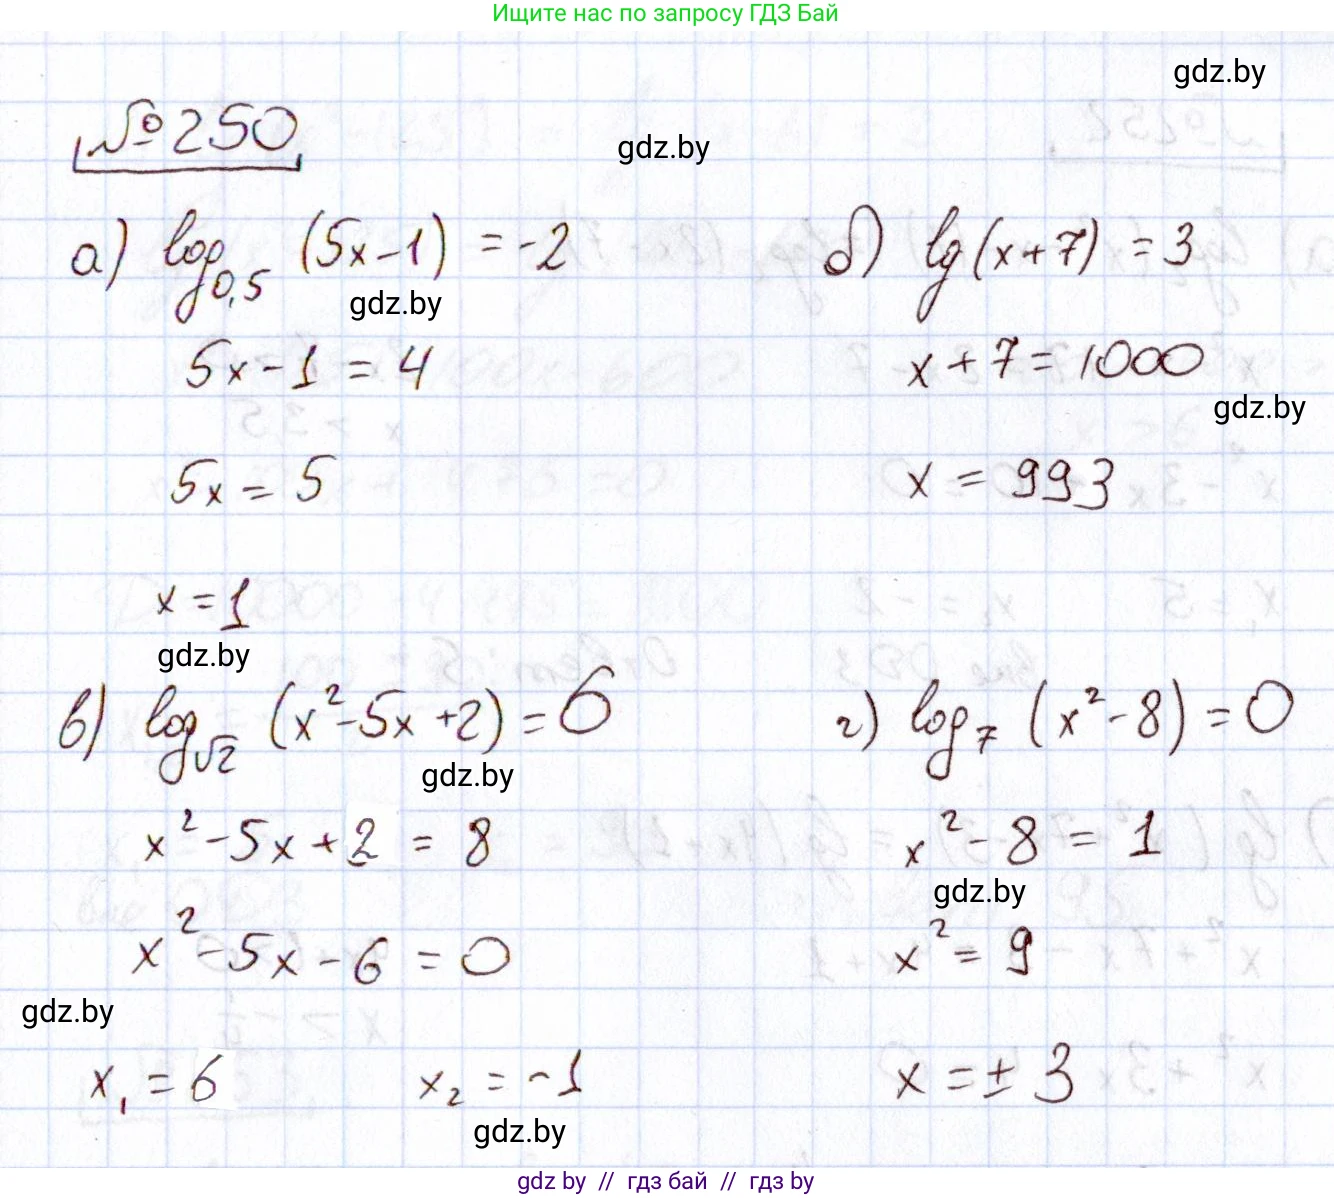 Ищите нас по запросу ГДЗ Бай
gdz.by
№250
gdz.by
а) log_{0,5} (5x-1) = -2
б) lg(x+7) = 3
gdz.by
5x-1 = 4
x+7 = 1000
gdz.by
5x = 5
x = 993
x = 1
gdz.by
в) log_{√2} (x²-5x+2) = 6
г) log_7 (x²-8) = 0
gdz.by
x²-5x+2 = 8
x²-8 = 1
gdz.by
x²-5x-6 = 0
x² = 9
gdz.by
x₁ = 6   x₂ = -1
x = ±3
gdz.by
gdz by // гдз бай // гдз by